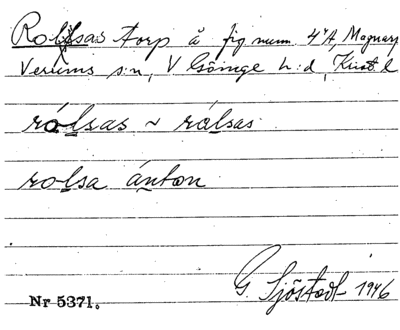 Rolsas torp å fig num 4ᵛA, Magnarp
Verums s:n, V Göinge h:d, Krist. l
rólsas ~ rólsas
rolsa ánton
G. Sjöstedt 1946
Nr 5371.